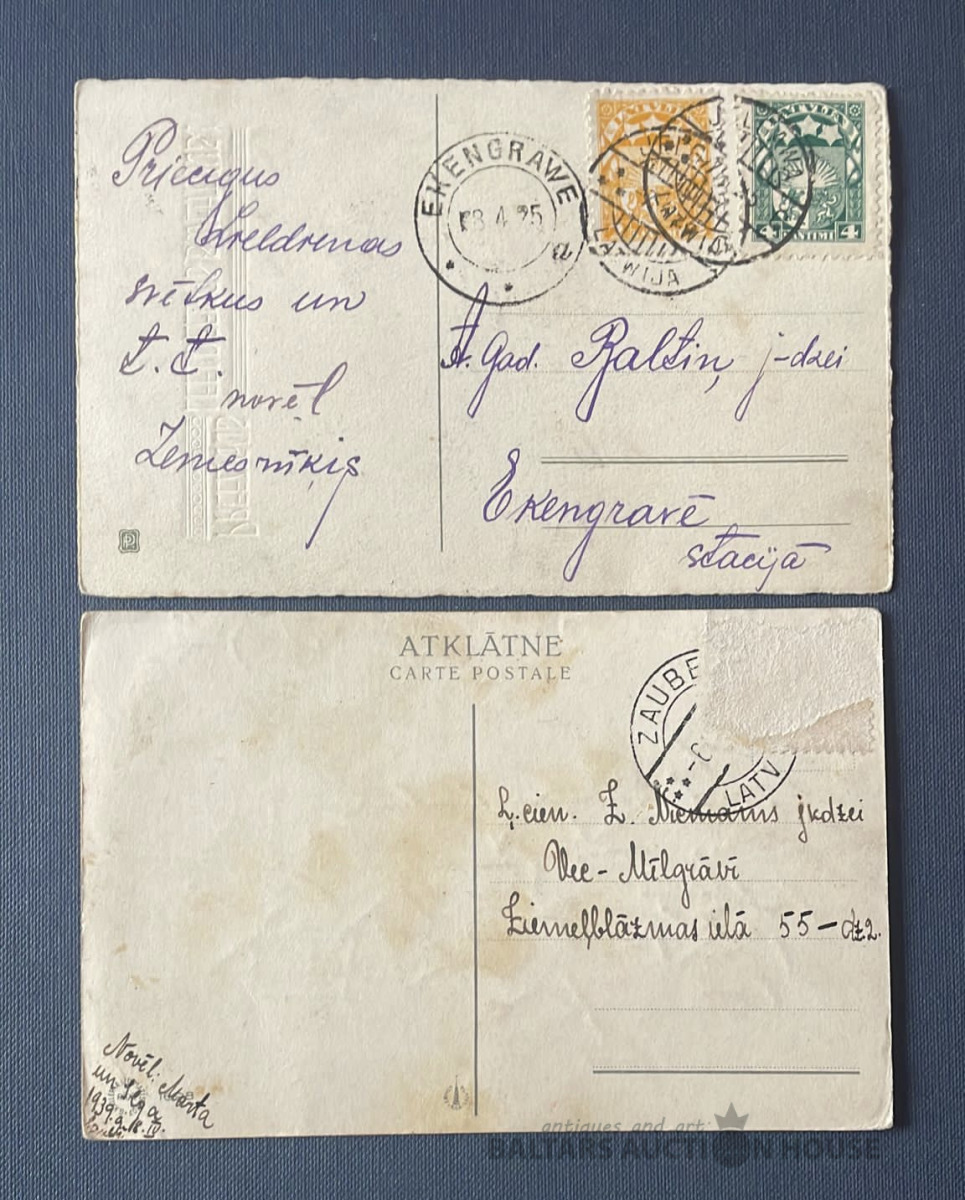 Priecīgus
Lieldienas
svētkus un
t. t.
novēl
Zemesrūķis
EKENGRAWE
8.4.25
a
LATVIJA
LATWIJA
LATVIJA
4 SANTIMI 4
A. God. Baltiņ j-dzei
Ekengravē
stacijā
ATKLĀTNE
CARTE POSTALE
ZAUBE
-6
LATV
Ļ. cien. Z. Niemans jkdzei
Vec-Mīlgrāvī
Ziemeļblāzmas ielā 55-dz2.
Novēl: Marta
un
1939.g.
antiques and art
BALTARS AUCTION HOUSE